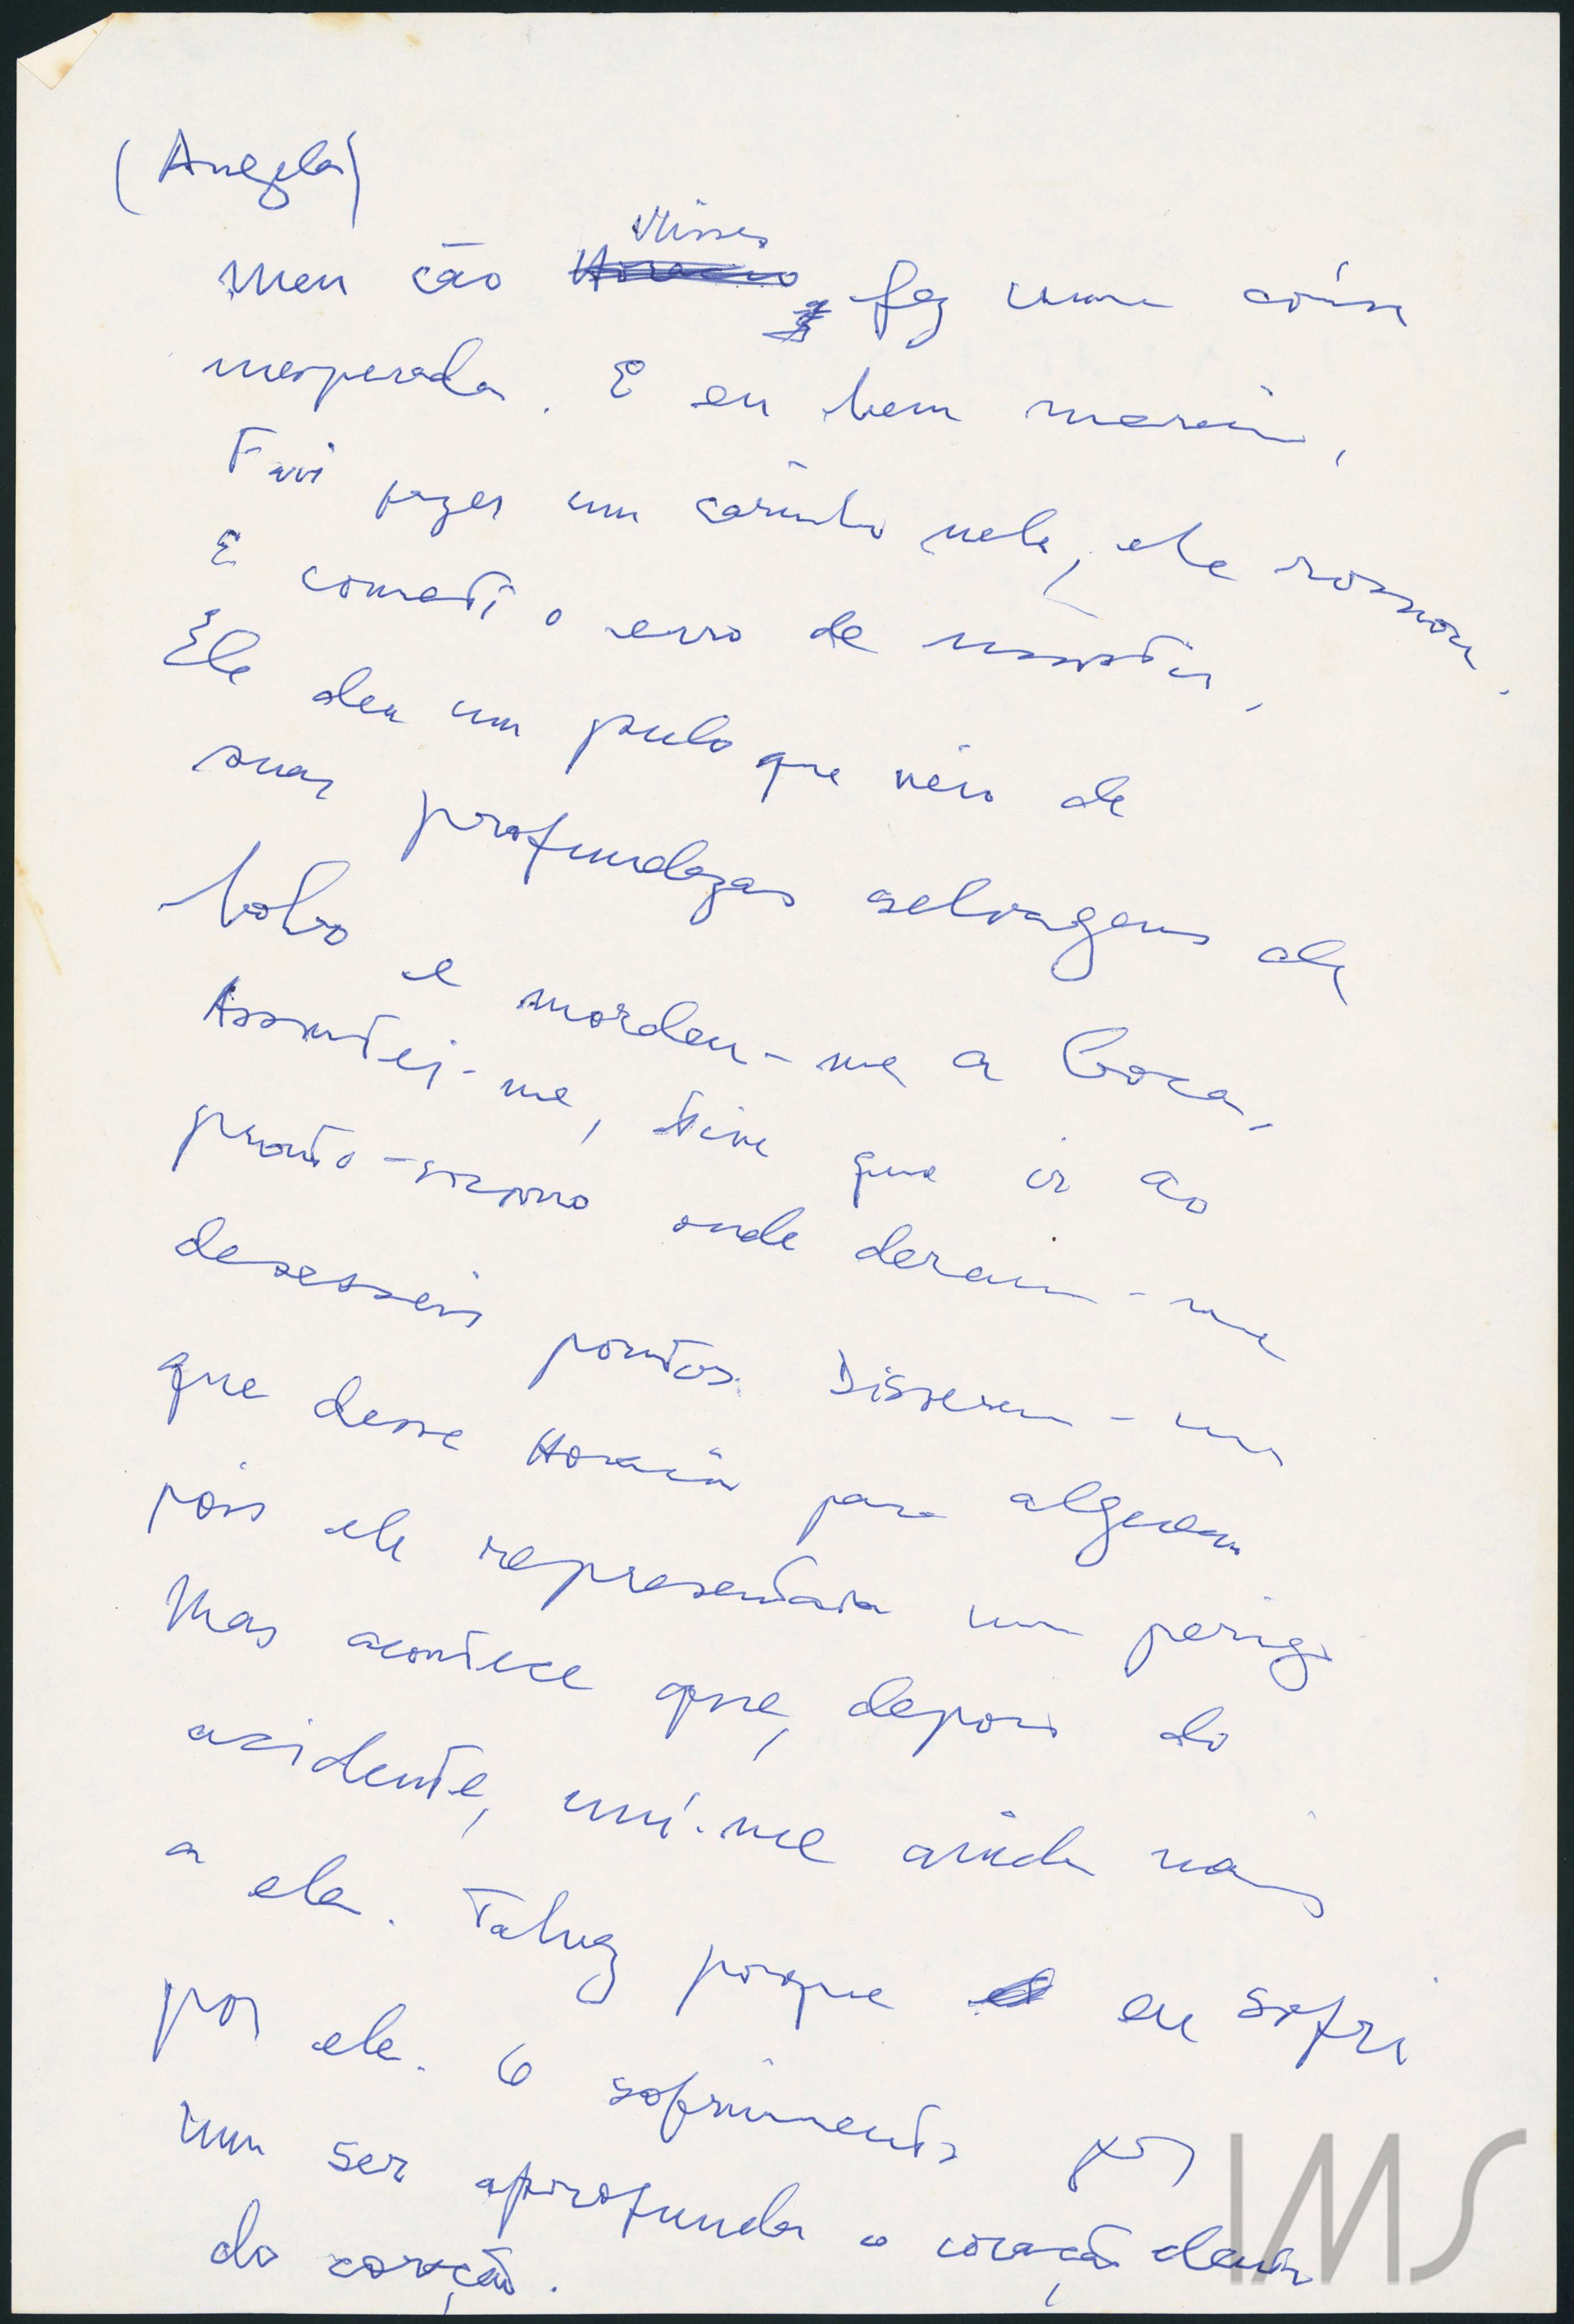 (Angela)
Ulisses
Meu cão Horacio fez uma coisa
inesperada. E eu bem mereci.
Fui fazer um carinho nele, ele rosnou.
E cometi o erro de insistir.
Ele deu um pulo que veio de
suas profundezas selvagens de
lobo e mordeu-me a boca.
Assustei-me, tive que ir ao
pronto-socorro onde deram-me
desesseis pontos. Disseram-me
que desse Horacio para alguem
pois ele representava um perigo
Mas acontece que, depois do
acidente, uni-me ainda mais
a ele. Talvez porque eu sofri
por ele. O sofrimento por
um ser aprofunda o coração dentro
do coração.
IMS